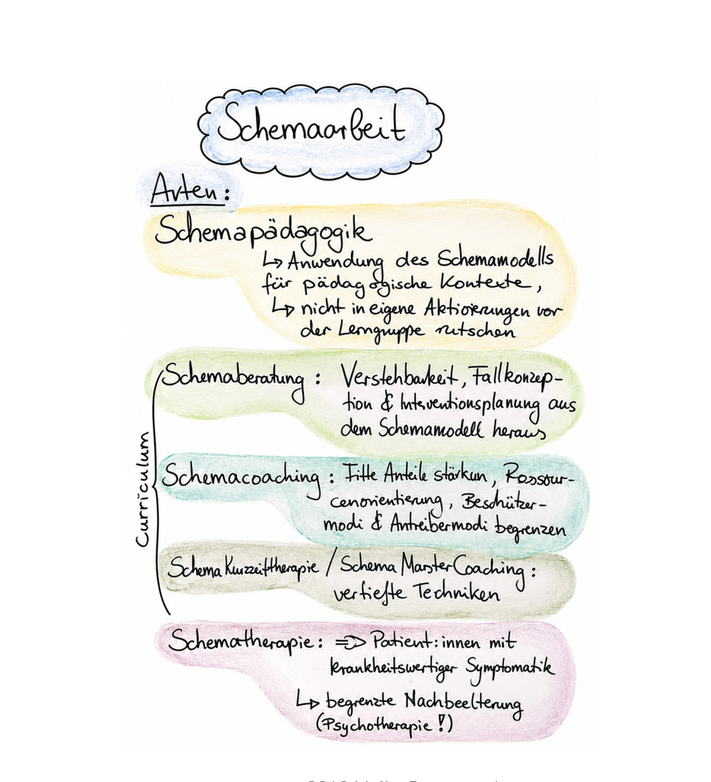 Schemaarbeit
Arten:
Schemapädagogik
↳ Anwendung des Schemamodells
für pädagogische Kontexte,
↳ nicht in eigene Aktivierungen vor
der Lerngruppe rutschen
Schemaberatung: Verstehbarkeit, Fallkonzep-
tion & Interventionsplanung aus
dem Schemamodell heraus
Curriculum
Schemacoaching: Fitte Anteile stärken, Ressour-
cenorientierung, Beschützer-
modi & Antreibermodi begrenzen
Schema Kurzzeittherapie / Schema MasterCoaching:
vertiefte Techniken
Schematherapie: => Patient:innen mit
krankheitswertiger Symptomatik
↳ begrenzte Nachbeelterung
(Psychotherapie!)